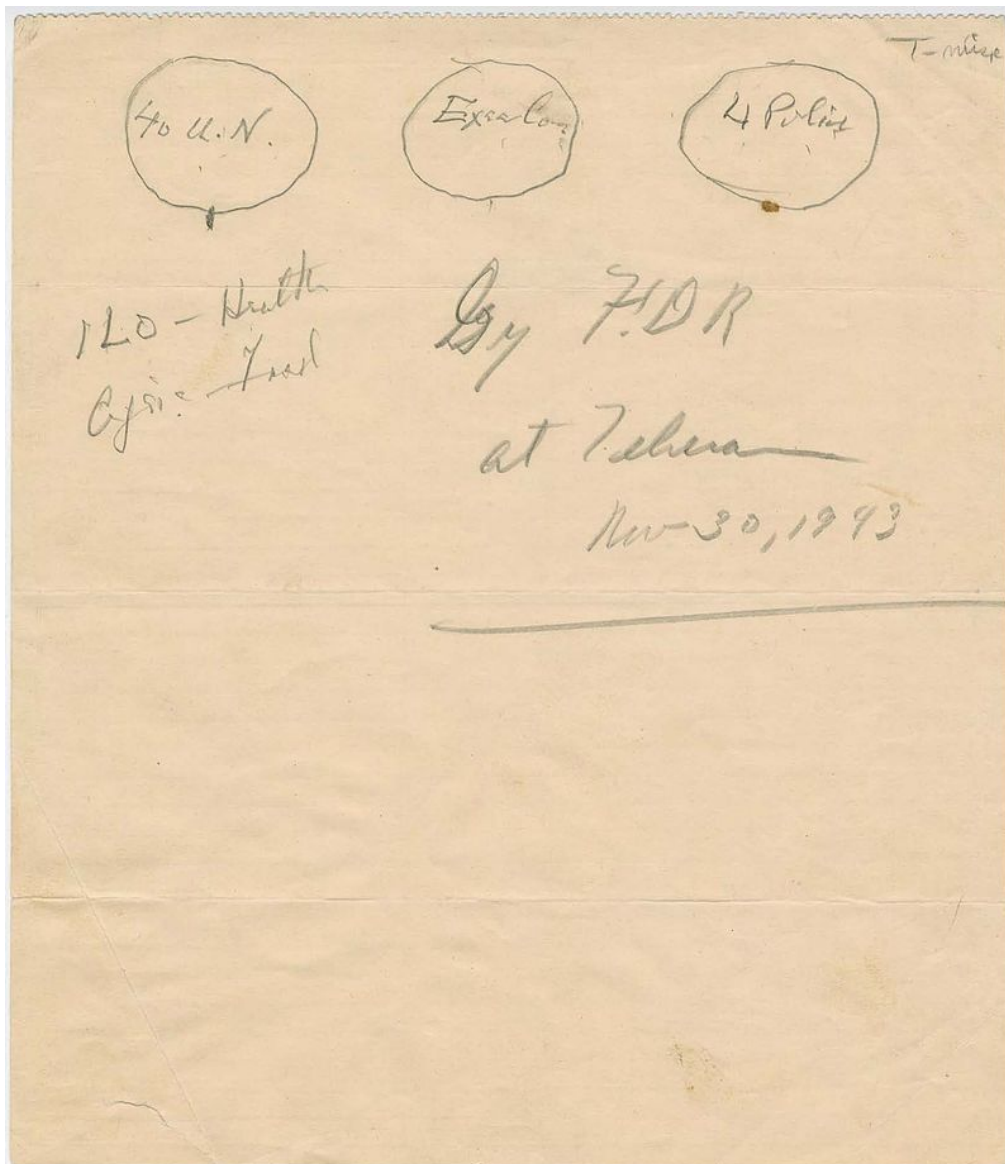 T-misc
40 U.N.
Exec Com
4 Police
ILO - Health
Agric - Food
By F.D.R
at Teheran
Nov-30, 1943